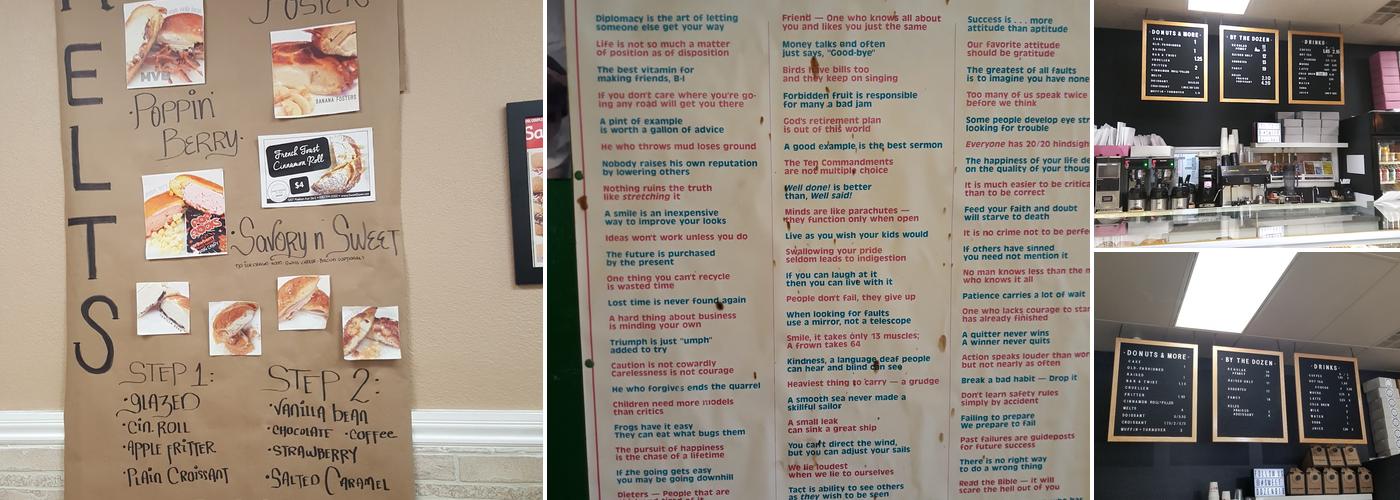 MELTS
Poppin'
Berry
BANANA FOSTERS
French Toast
Cinnamon Roll
$4
Savory n' Sweet
STEP 1:
• GLAZED
• Cin. ROLL
• APPLE FRITTER
• Plain Croissant
STEP 2:
• Vanilla bean
• CHOCOLATE • Coffee
• STRAWBERRY
• SALTED CARAMEL
Sa
Diplomacy is the art of letting
someone else get your way
Life is not so much a matter
of position as of disposition
The best vitamin for
making friends, B-I
If you don't care where you're go-
ing any road will get you there
A pint of example
is worth a gallon of advice
He who throws mud loses ground
Nobody raises his own reputation
by lowering others
Nothing ruins the truth
like stretching it
A smile is an inexpensive
way to improve your looks
Ideas won't work unless you do
The future is purchased
by the present
One thing you can't recycle
is wasted time
Lost time is never found again
A hard thing about business
is minding your own
Triumph is just "umph"
added to try
Caution is not cowardly
Carelessness is not courage
He who forgives ends the quarrel
Children need more models
than critics
Frogs have it easy
They can eat what bugs them
The pursuit of happiness
is the chase of a lifetime
If the going gets easy
you may be going downhill
Dieters — People that are
Friend — One who knows all about
you and likes you just the same
Money talks and often
just says, "Good-bye"
Birds have bills too
and they keep on singing
Forbidden fruit is responsible
for many a bad jam
God's retirement plan
is out of this world
A good example is the best sermon
The Ten Commandments
are not multiple choice
Well done! is better
than, Well said!
Minds are like parachutes —
they function only when open
Live as you wish your kids would
Swallowing your pride
seldom leads to indigestion
If you can laugh at it
then you can live with it
People don't fail, they give up
When looking for faults
use a mirror, not a telescope
Smile, it takes only 13 muscles;
A frown takes 64
Kindness, a language deaf people
can hear and blind can see
Heaviest thing to carry — a grudge
A smooth sea never made a
skillful sailor
A small leak
can sink a great ship
You can't direct the wind,
but you can adjust your sails
We lie loudest
when we lie to ourselves
Tact is ability to see others
as they wish to be seen
Success is . . . more
attitude than aptitude
Our favorite attitude
should be gratitude
The greatest of all faults
is to imagine you have none
Too many of us speak twice
before we think
Some people develop eye str
looking for trouble
Everyone has 20/20 hindsigh
The happiness of your life de
on the quality of your thoug
It is much easier to be critica
than to be correct
Feed your faith and doubt
will starve to death
It is no crime not to be perfe
If others have sinned
you need not mention it
No man knows less than the m
who knows it all
Patience carries a lot of wait
One who lacks courage to star
has already finished
A quitter never wins
A winner never quits
Action speaks louder than wor
but not nearly as often
Break a bad habit — Drop it
Don't learn safety rules
simply by accident
Failing to prepare
We prepare to fail
Past failures are guideposts
for future success
There's no right way
to do a wrong thing
Read the Bible — it will
scare the hell out of you
DONUTS & MORE
CAKE
OLD-FASHIONED
RAISED
BAR & TWIST
CRUELLER
FRITTER
CINNAMON ROLL*FILLED
MELTS
DOISSANT
CROISSANT
MUFFIN • TURNOVER
BY THE DOZEN
DRINKS
DONUTS & MORE
CAKE
OLD-FASHIONED
RAISED
BAR & TWIST
CRUELLER
FRITTER
CINNAMON ROLL*FILLED
MELTS
DOISSANT
CROISSANT
MUFFIN • TURNOVER
BY THE DOZEN
DRINKS